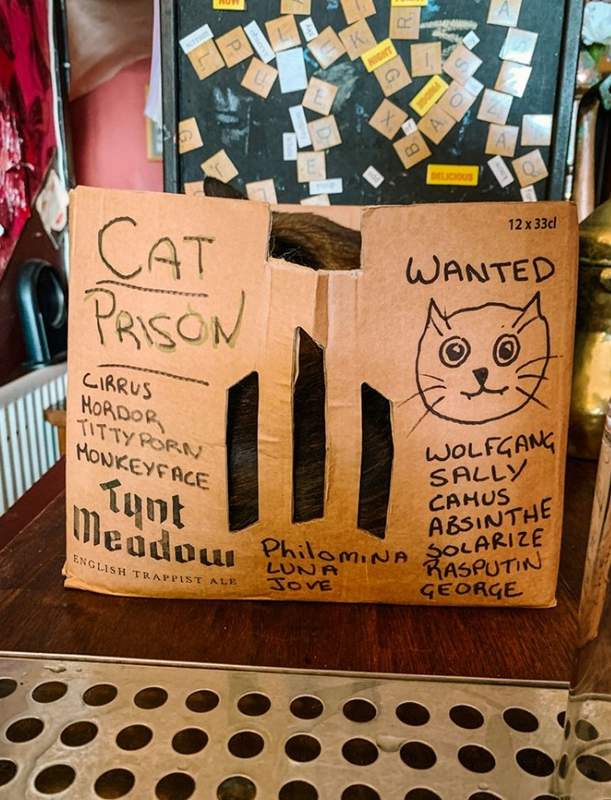 NOW
NIGHT
ZOMBIE
DELICIOUS
12 x 33cl
CAT
PRISON
CIRRUS
MORDOR
TITTYPORN
MONKEYFACE
Tynt
Meadow
ENGLISH TRAPPIST ALE
Philomina
LUNA
JOVE
WANTED
WOLFGANG
SALLY
CAMUS
ABSINTHE
SOLARIZE
RASPUTIN
GEORGE